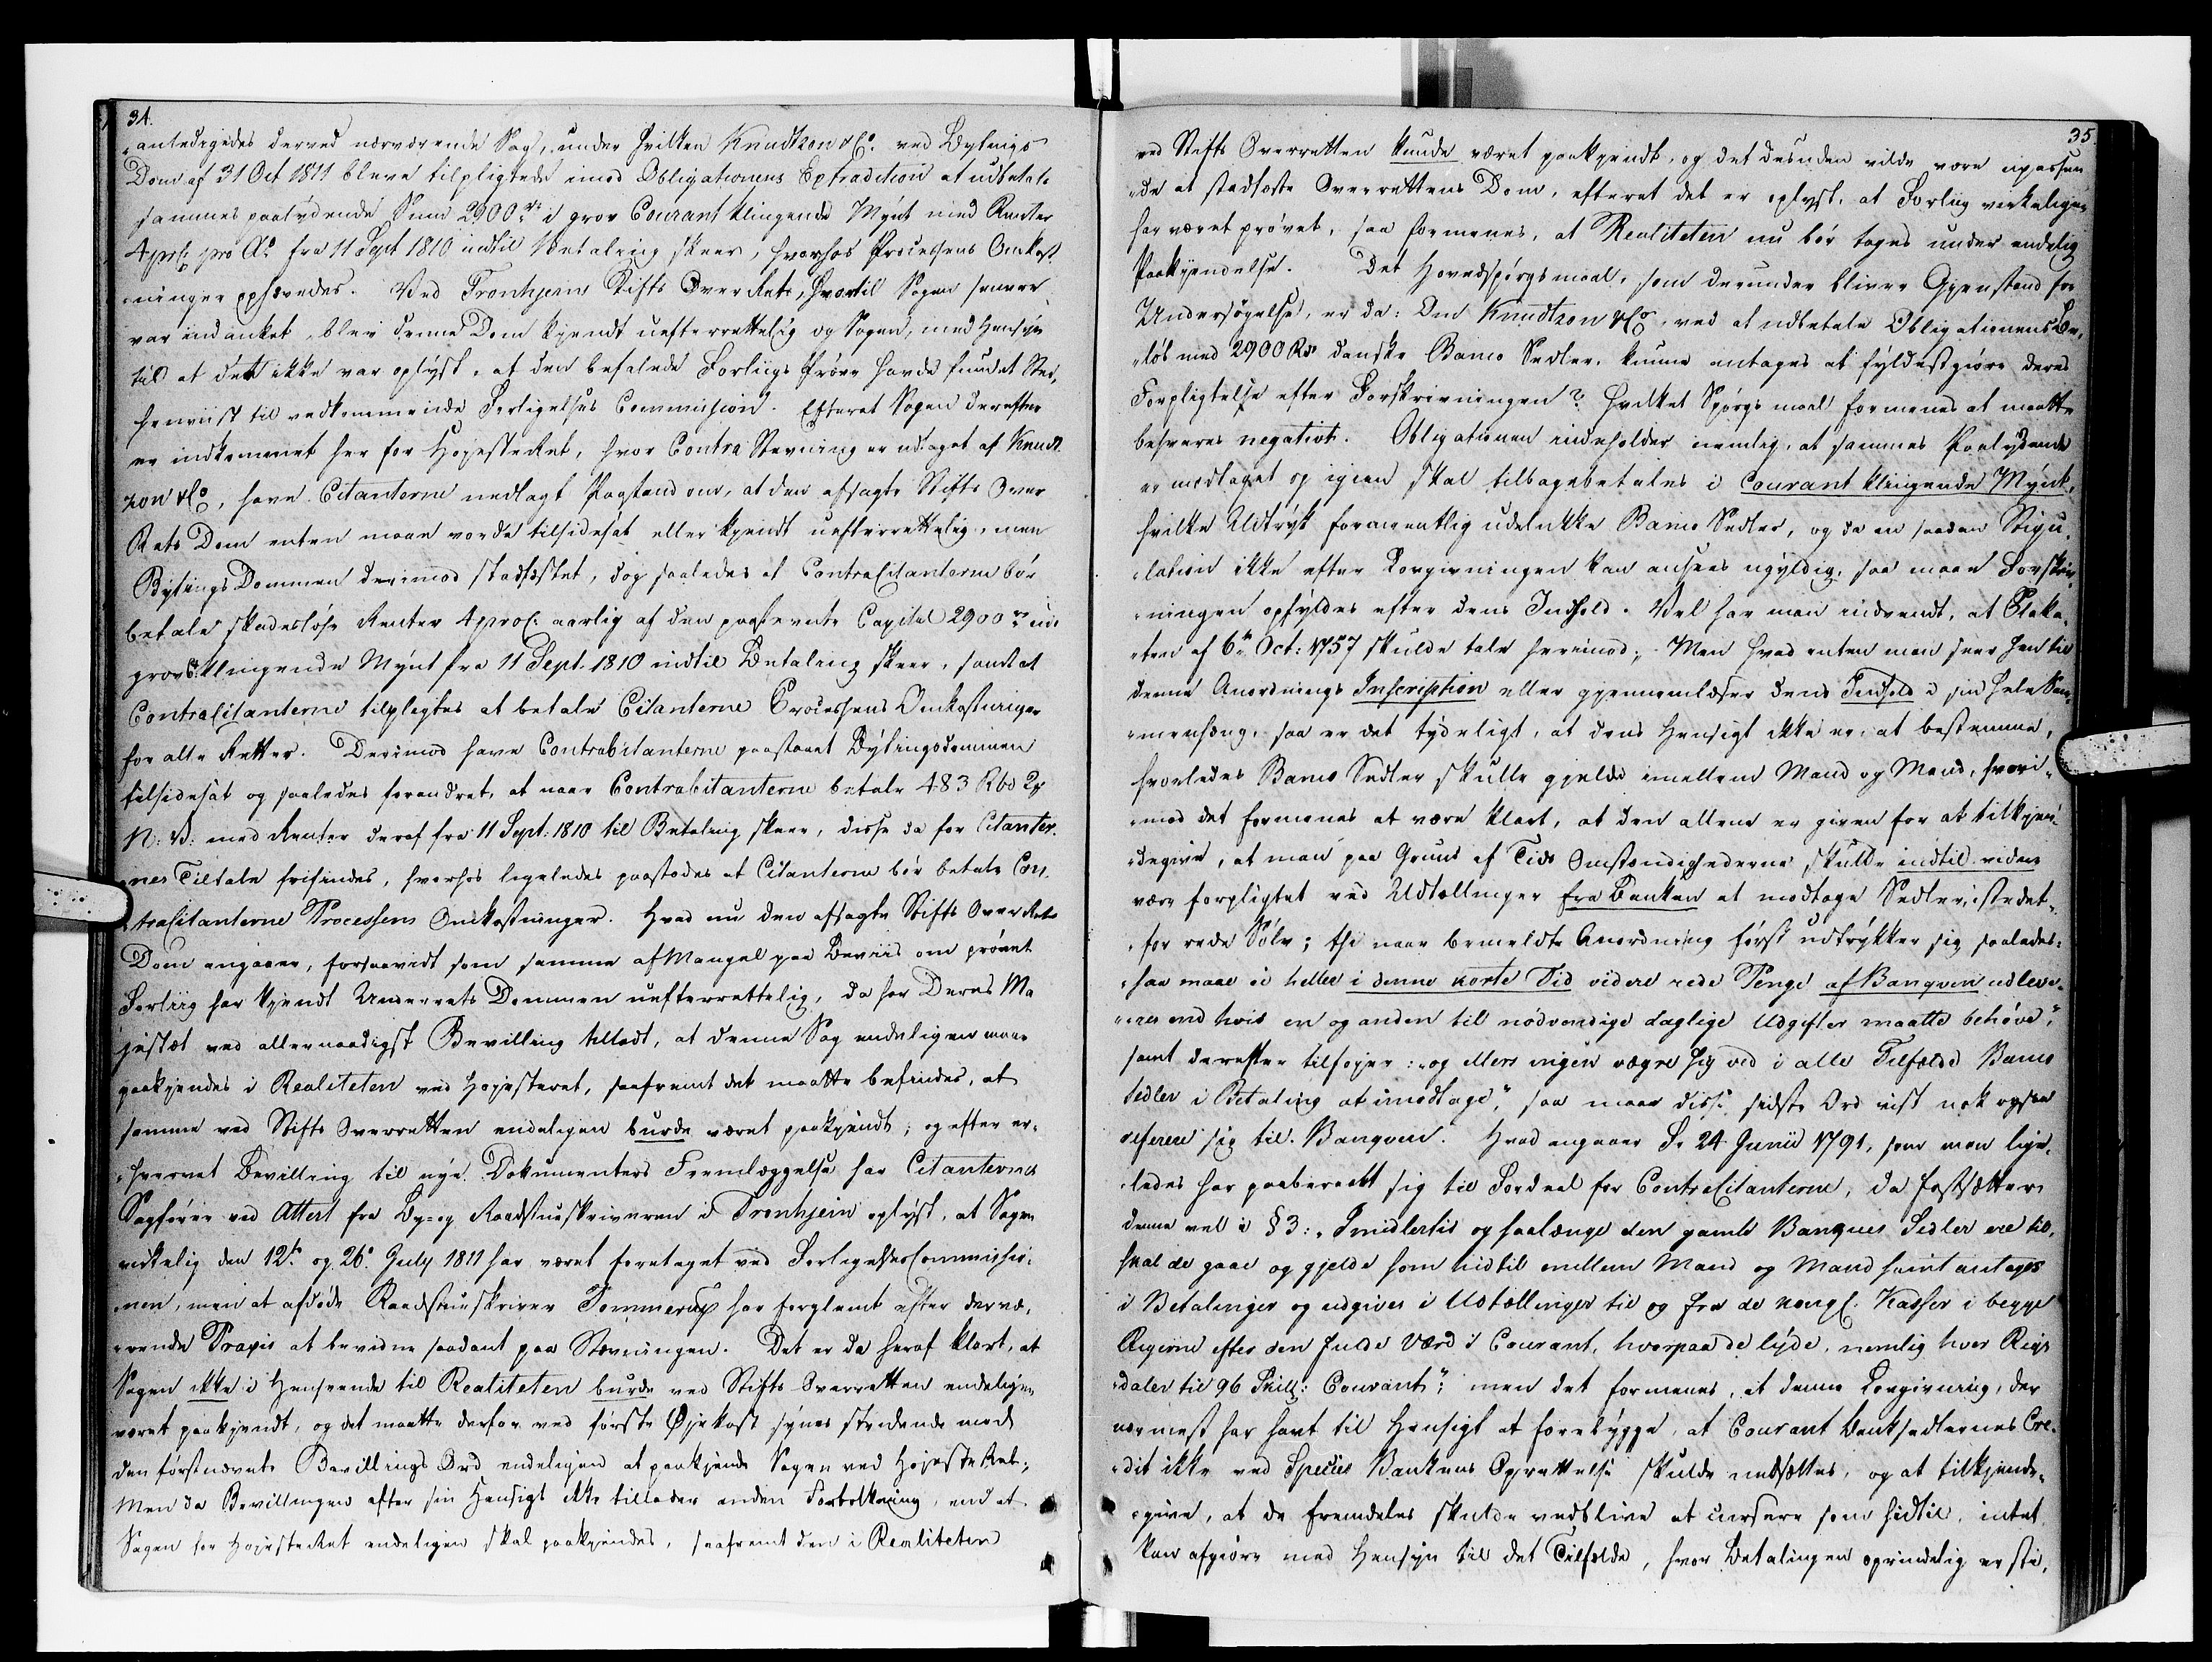 34.
anledigedes derved nærværende Sag, under hvilken Knudtzon & Co. ved Bytings
Dom af 31 Oct 1811 bleve tilpligtede imod Obligationens Extradition at udbetale
sammes paalydende Sum 2900 rd i grov Courant klingende Mynt med Renter
4 prC. pro Ao fra 11 Sept 1810 indtil Betaling skeer, hvorhos Processens Omkost
ninger ophævedes. Ved Tronhjems Stifts OverRet, hvortil Sagen senere
var indanket, blev denne Dom kjendt uefterrettelig og Sagen, med Hensyn
til at det ikke var oplyst, at den befalede Forligs Prøve havde fundet Sted,
henviist til vedkommende Forligelses Commission. Efterat Sagen derefter
er indkommet her for HøjesteRet, hvor Contra Stevning er udtaget af Knudt
zon & Co, have Citanterne nedlagt Paastand om, at den afsagte Stifts Over
Rets Dom enten maae vorde tilsidesat eller kjendt uefterrettelig, men
Bytings Dommen derimod stadfæstet, dog saaledes at ContraCitanterne bør
betale skadesløse Renter 4 proC. aarlig af den paastevnte Capital 2900 rd i
grov klingende Mynt fra 11 Sept. 1810 indtil Betaling skeer, samt at
ContraCitanterne tilpligtes at betale Citanterne Processens Omkostninger
for alle Retter. Derimod have ContraCitanterne paastaaet Bytingsdommen
tilsidesat og saaledes forandret, at naar ContraCitanterne betale 483 Rbd 2
N. V. med Renter deraf fra 11 Sept: 1810 til Betaling skeer, disse da for Citanter
nes Tiltale frifindes, hvorhos ligeledes paastodes at Citanterne bør betale Con
traCitanterne Processens Omkostninger. Hvad nu den afsagte Stifts OverRets
Dom angaaer, forsaavidt som samme af Mangel paa Beviis om prøvet
Forliig har kjendt Underrets Dommen uefterrettelig, da har Deres Ma
jestæt ved allernaadigst Bevilling tilladt, at denne Sag endeligen maae
paakjendes i Realiteten ved Højesteret, saafremt det maatte befindes, at
samme ved Stifts Overretten endeligen burde været paakjendt; og efter er
hvervet Bevilling til nye Dokumenters Fremlæggelse har Citanternes
Sagfører ved Attest fra By- og Raadstueskriveren i Tronhjem oplyst, at Sagen
virkelig den 12te og 26. July 1811 har været foretaget ved ForligelsesCommissio
nen, men at afdøde Raadstueskriver Tommerup har forglemt efter dervæ
rende Praxis at bevidne saadant paa Stevningen. Det er da heraf klart, at
Sagen ikke i Henseende til Realiteten burde ved Stifts Overretten endeligen
været paakjendt, og det maatte derfor ved første Øjekast synes stridende mod
den førstnævnte Bevillings Ord endeligen at paakjende Sagen ved HøjesteRet;
Men da Bevillingen efter sin Hensigt ikke tillader anden Fortolkning, end at
Sagen for HøjesteRet endeligen skal paakjendes, saafremt den i Realiteten
35.
ved Stifts Overretten kunde været paakjendt, og det desuden vilde være upassen
de at stadfæste Overrettens Dom, efterat det er oplyst, at Forliig virkeligen
har været prøvet, saa formenes, at Realiteten nu bør tages under endelig
Paakjendelse. Det Hovedspørgsmaal, som derunder bliver Gjenstand for
Undersøgelse, er da: Om Knudtzon & Co, ved at udbetale Obligationens Be
løb med 2900 Rdr danske Banco Sedler, kunne antages at fyldestgjøre deres
Forpligtelse efter Forskrivningen? Hvilket Spørgsmaal formenes at maatte
besvares negativt. Obligationen indeholder nemlig, at sammes Paalydende
er modtaget og igien skal tilbagebetales i Courant klingende Mynt,
hvilke Udtryk formeentlig udelukke Banco Sedler, og da en saadan Stipu
lation ikke efter Lovgivningen kan ansees ugyldig, saa maae Forskriv
ningen opfyldes efter dens Indhold. Vel har man indvendt, at Plaka
ten af 6te Oct: 1757 skulde tale herimod; Men hvad enten man seer hen til
denne Anordnings Inscription eller gjennemlæser dens Indhold i sin hele Sam
menhæng, saa er det tydeligt, at dens Hensigt ikke er, at bestemme,
hvorledes Banco Sedler skulle gjelde imellem Mand og Mand, hvori
mod det formenes at være klart, at den allene er given for at tilkjen
degive, at man paa Grund af Tids Omstændighederne skulde indtil videre
være forpligtet ved Udtællinger fra Banken at modtage Sedler, istedet
for rede Sølv; thi naar bemeldte Anordning først udtrykker sig saaledes:
saa maae ei heller i denne korte Tid videre rede Penge af Banqven udleve
res end hvis en og anden til nødvendige daglige Udgifter maatte behøve",
samt derefter tilføjer: „og ellers ingen vægre sig ved i alle Tilfælde Banco
Sedler i Betaling at imodtage," saa maae disse sidste Ord vist nok ogsaa
referere sig til Banqven. Hvad angaaer Fr. 24 Junii 1791, som man lige
ledes har paaberaabt sig til Fordeel for ContraCitanterne, da fastsætter
denne vel i § 3: „Imidlertid og saalænge den gamle Banques Sedler ere til,
skal de gaae og gjelde som hidtil mellem Mand og Mand samt antages
i Betalinger og udgives i Udtællinger til og fra de kongl. Kasser i begge
Rigerne efter den fulde Værd i Courant, hvorpaa de lyde, nemlig hver Rigs
daler til 96 Skill: Courant"; men det formenes, at denne Lovgivning, der
nærmest har havt til Hensigt at forebygge, at Courant Banksedlernes Cre
dit ikke ved Species Bankens Oprettelse skulde nedsættes, og at tilkjende
give, at de fremdeles skulde vedblive at cursere som hidtil, intet
kan afgiøre med Hensyn til det Tilfælde, hvor Betalingen oprindelig er sti